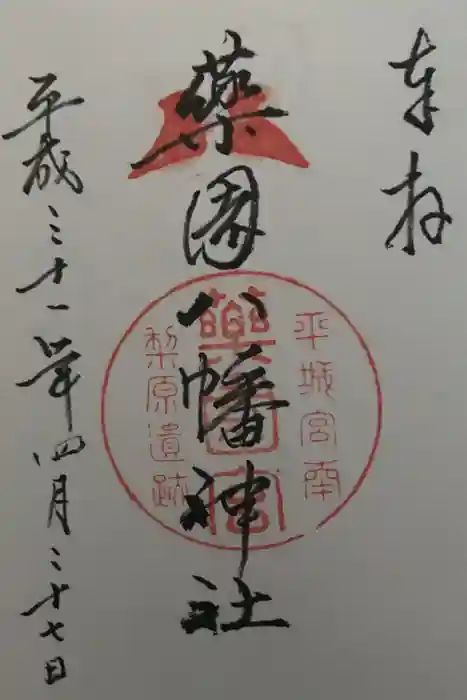 奉拝
薬園八幡神社
平城宮南
薬園宮
梨原遺跡
平成三十一年四月二十七日